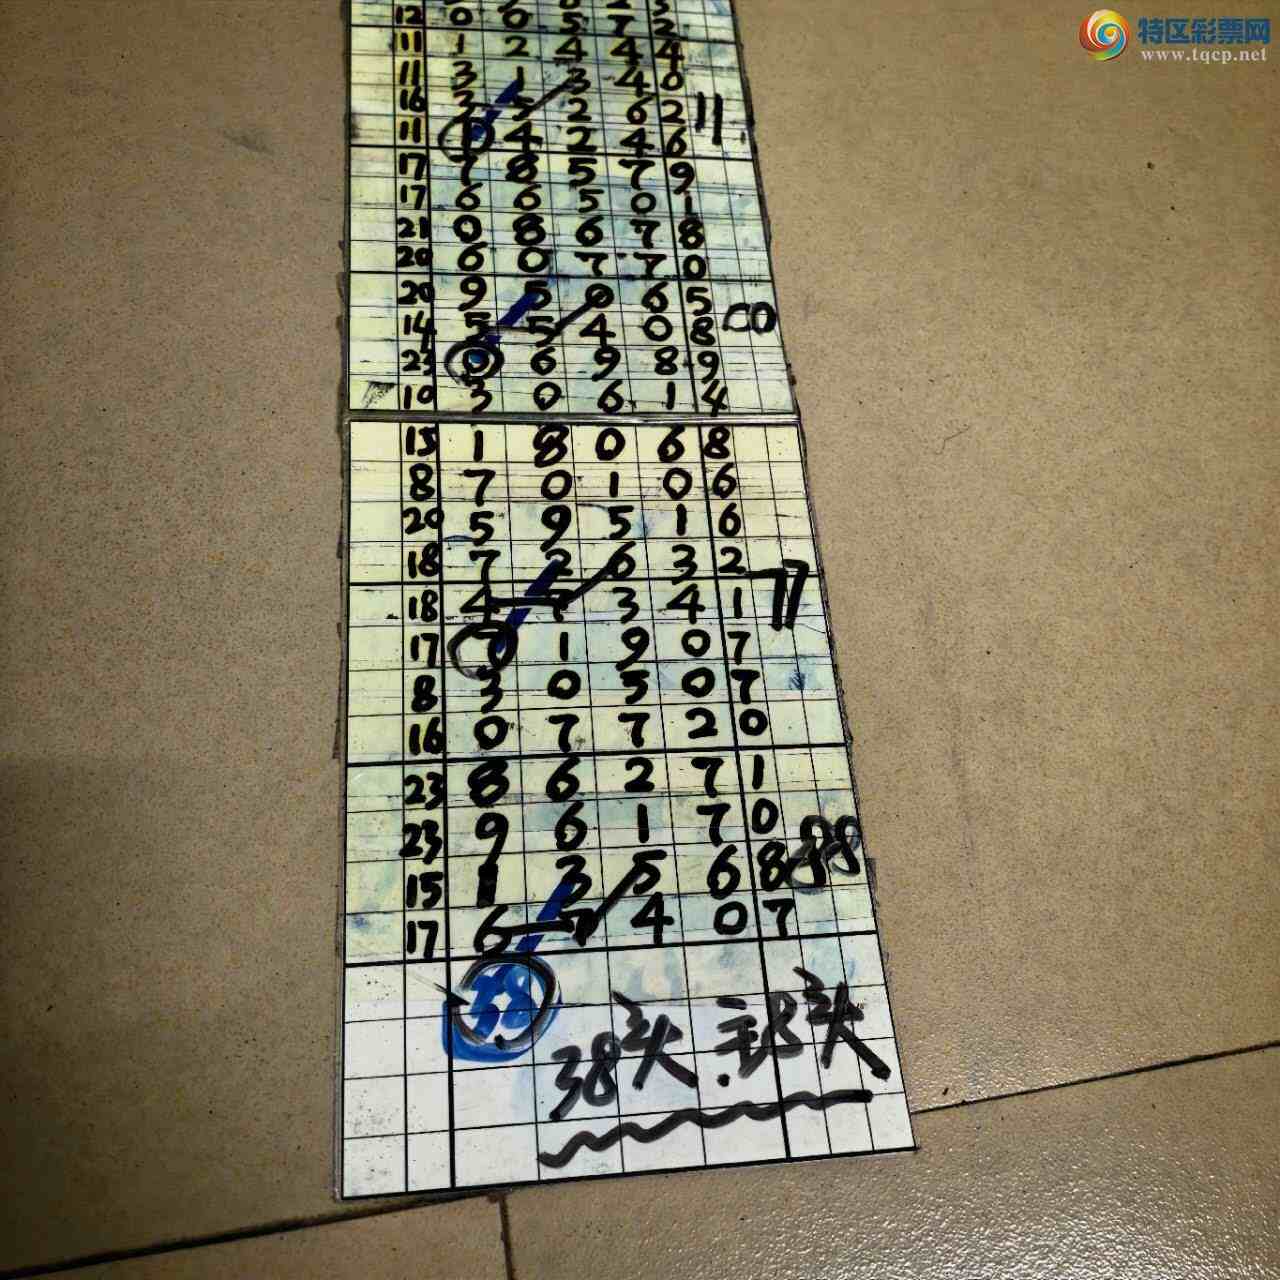 特区彩票网
www.tqcp.net
12 0 0 5 7 2
11 1 2 4 4 4
11 3 1 3 4 0
16 3 5 2 6 2 11
11 1 4 2 4 6
17 7 8 5 7 9
17 6 6 5 0 1
21 0 8 6 7 8
20 6 0 7 7 0
20 9 5 0 6 5
14 5 5 4 0 8 00
23 0 6 9 8 9
10 3 0 6 1 4
15 1 8 0 6 8
8 7 0 1 0 6
20 5 9 5 1 6
18 7 2 6 3 2
18 4 7 3 4 1 77
17 7 1 9 0 7
8 3 0 5 0 7
16 0 7 7 2 0
23 8 6 2 7 1
23 9 6 1 7 0
15 1 3 5 6 8 88
17 6 7 4 0 7
38
38头.主8头